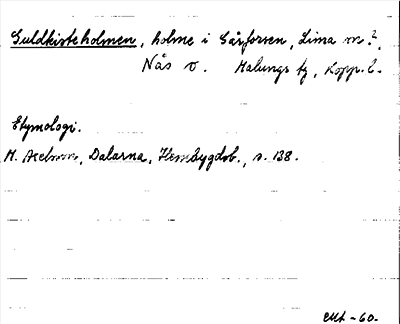 Guldkisteholmen, holme i Gårforsen, Lima sn?,
Nås v. Malungs tg, Kopp. l.
Etymologi.
M. Axelson, Dalarna, Hembygdsb., s. 138.
-60-